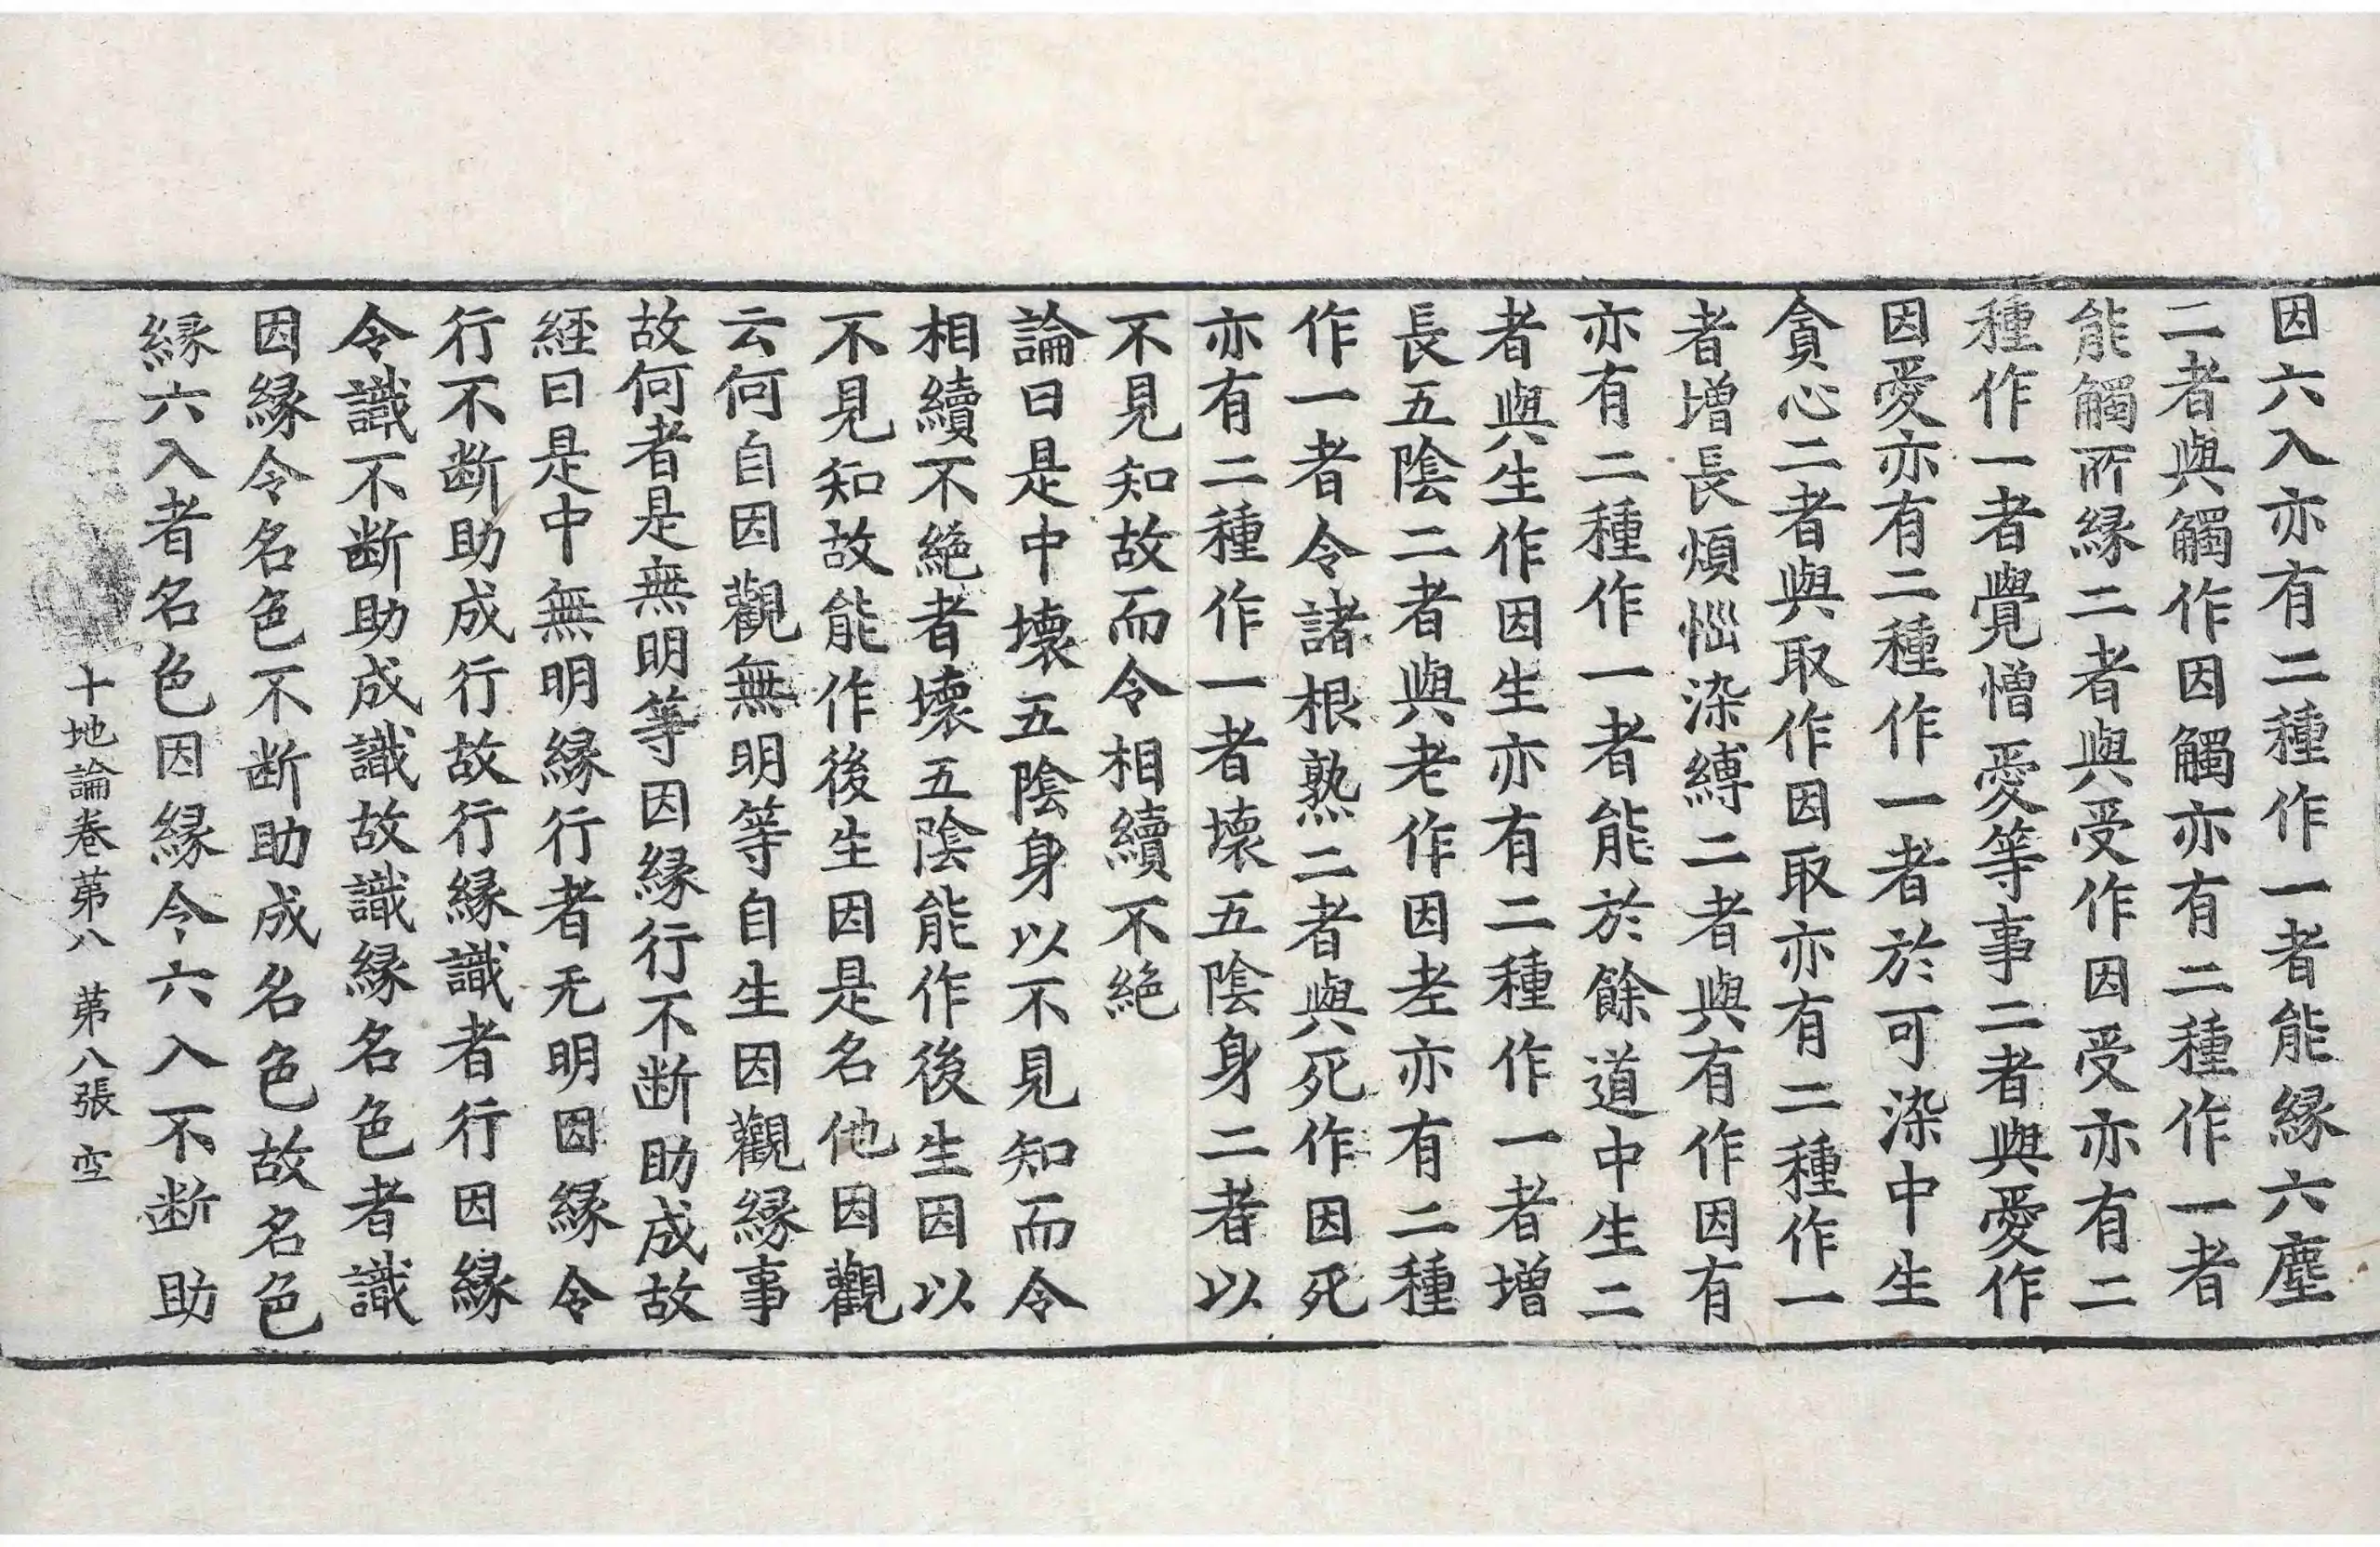 因六入亦有二種作一者能縁六塵
二者與觸作因觸亦有二種作一者
能觸所縁二者與受作因受亦有二
種作一者覺憎愛等事二者與愛作
因愛亦有二種作一者於可染中生
貪心二者與取作因取亦有二種作一
者增長煩惱染縛二者與有作因有
亦有二種作一者能於餘道中生二
者與生作因生亦有二種作一者增
長五陰二者與老作因老亦有二種
作一者令諸根熟二者與死作因死
亦有二種作一者壞五陰身二者以
不見知故而令相續不絶
論曰是中壞五陰身以不見知而令
相續不絶者壞五陰能作後生因以
不見知故能作後生因是名他因觀
云何自因觀無明等自生因觀縁事
故何者是無明等因縁行不断助成故
経曰是中無明縁行者无明因縁令
行不断助成行故行縁識者行因縁
令識不断助成識故識縁名色者識
因縁令名色不断助成名色故名色
縁六入者名色因縁令六入不断助
十地論卷第八 第八張 空